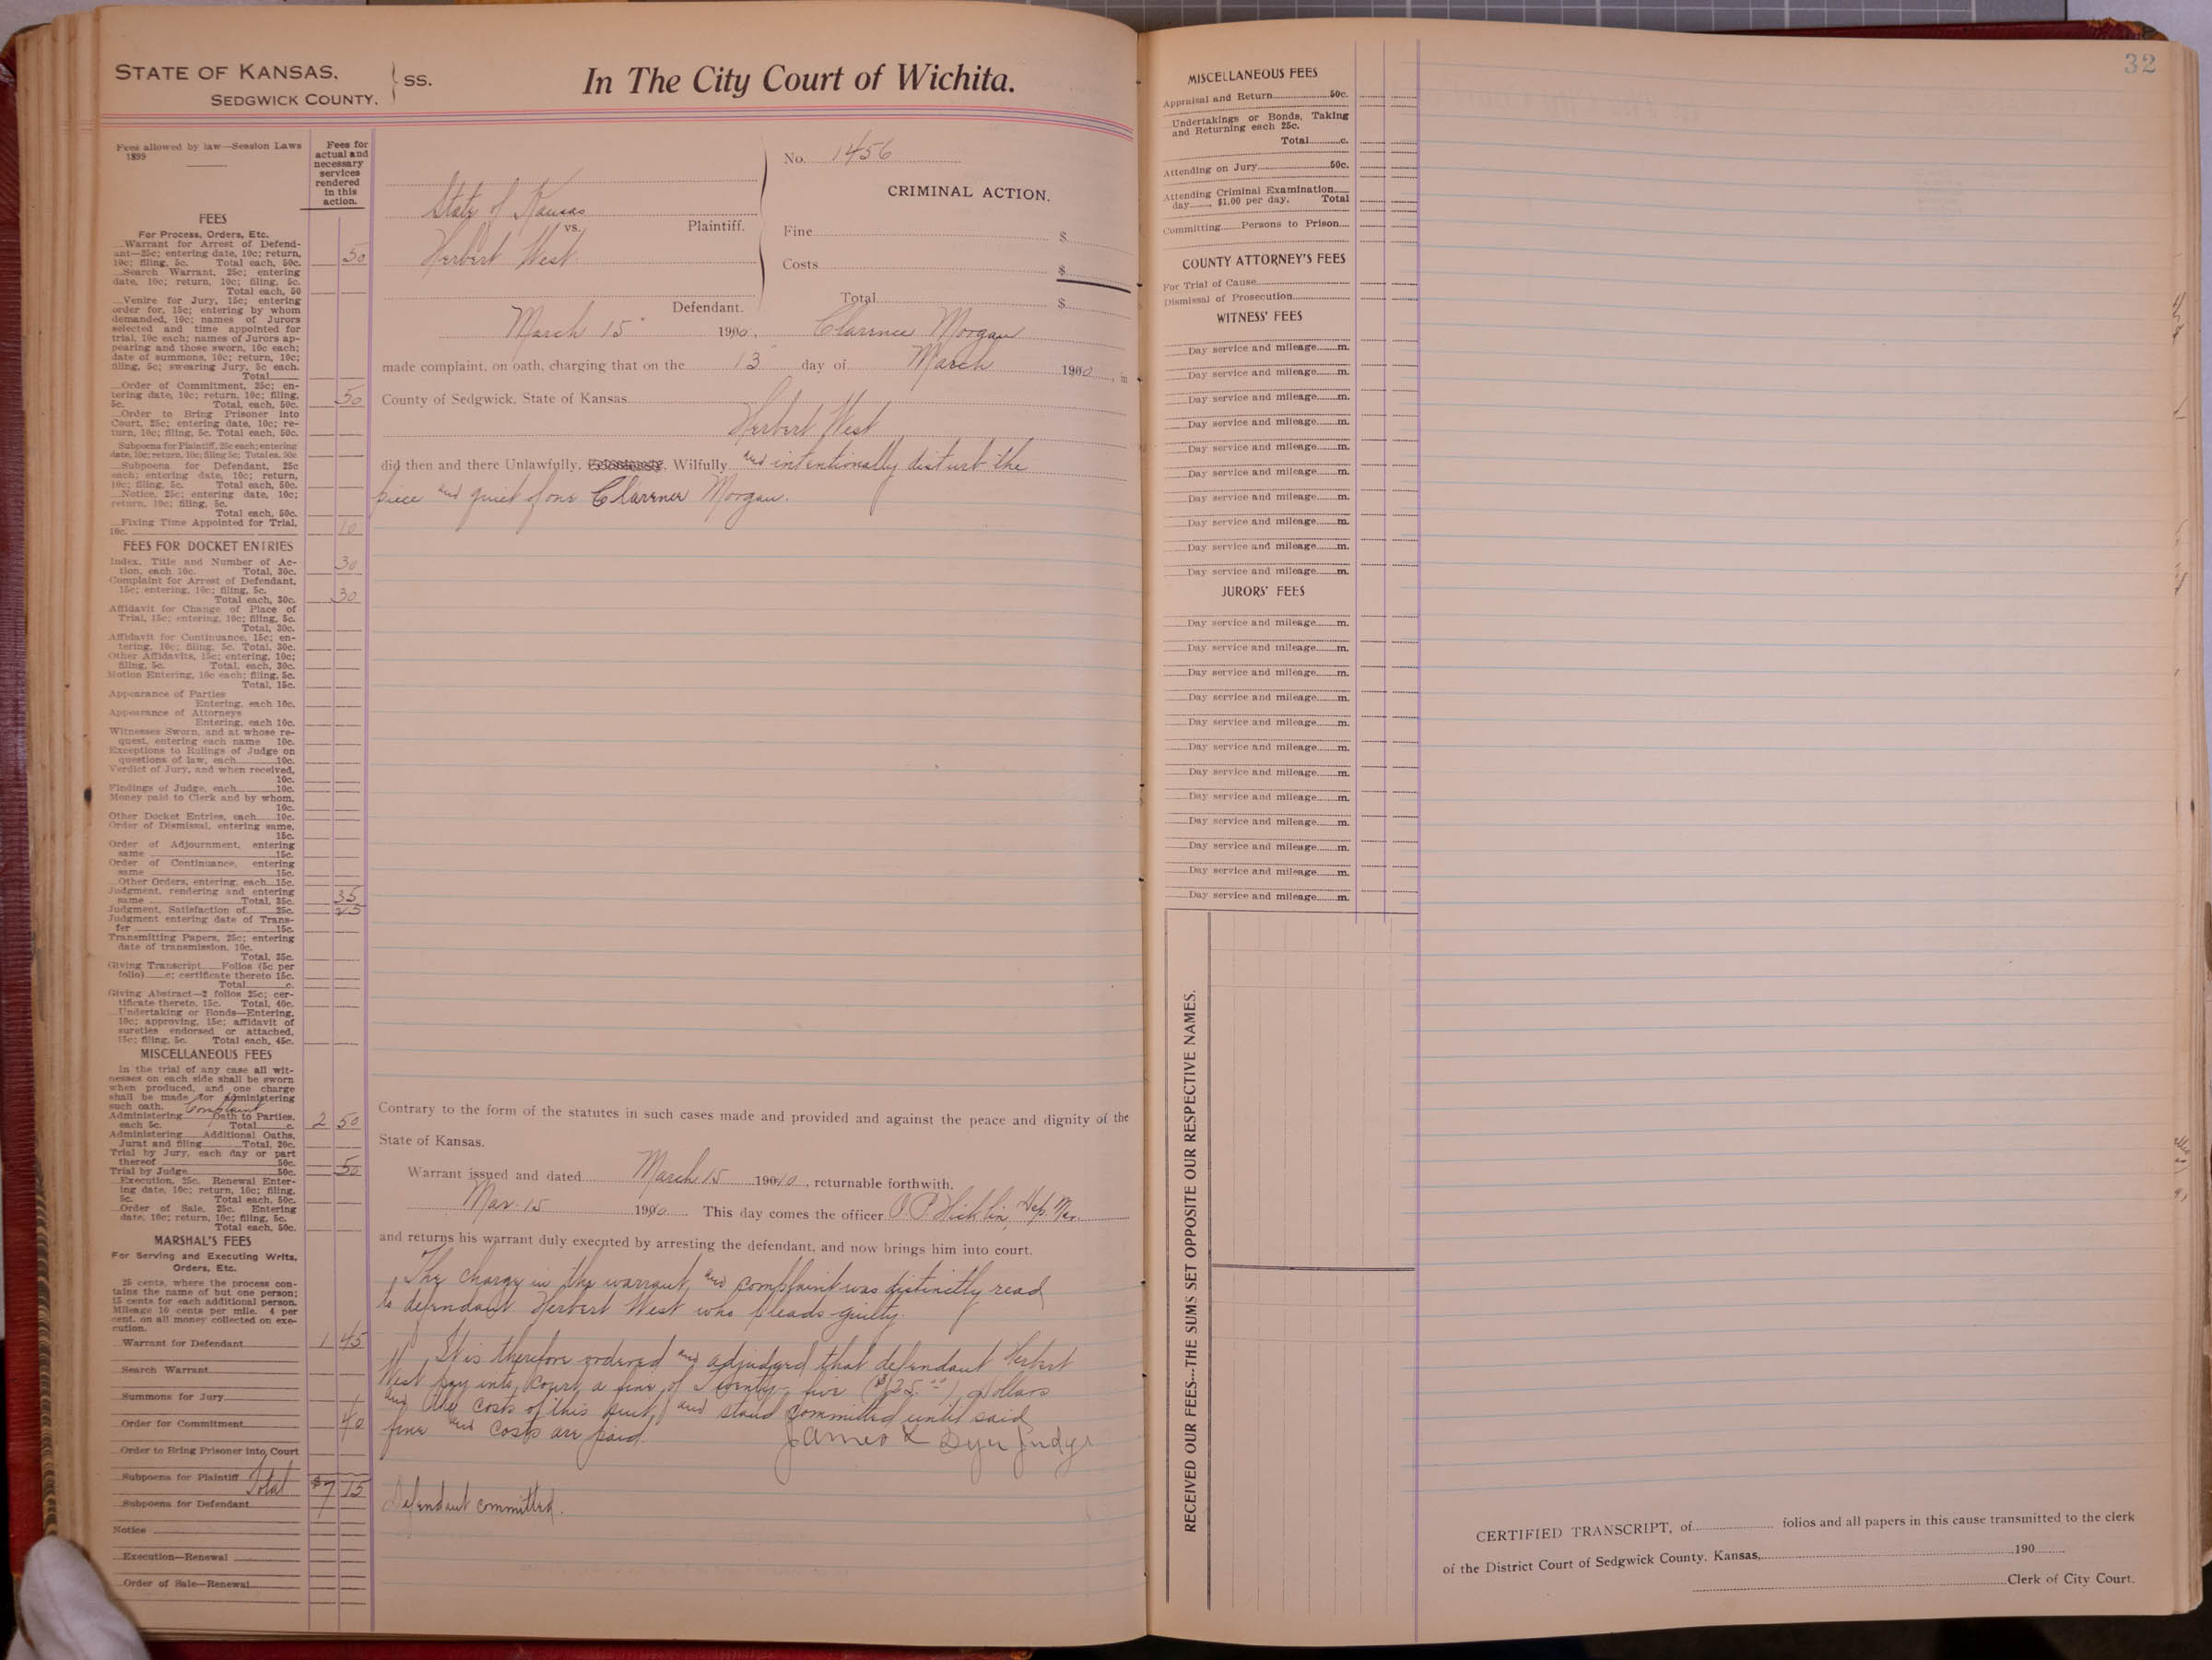 STATE OF KANSAS,
SEDGWICK COUNTY.
SS.
In The City Court of Wichita.
Fees allowed by law—Session Laws
1899
Fees for
actual and
necessary
services
rendered
in this
action.
FEES
For Process, Orders, Etc.
Warrant for Arrest of Defend-
ant—25c; entering date, 10c; return,
10c; filing, 5c. Total each, 50c. 50
Search Warrant, 25c; entering
date, 10c; return, 10c; filing, 5c.
Total each, 50
Venire for Jury, 15c; entering
order for, 15c; entering by whom
demanded, 10c; names of Jurors
selected and time appointed for
trial, 10c each; names of Jurors ap-
pearing and those sworn, 10c each;
date of summons, 10c; return, 10c;
filing, 5c; swearing Jury, 5c each.
Total
Order of Commitment, 25c; en-
tering date, 10c; return, 10c; filing,
5c. Total, each, 50c. 50
Order to Bring Prisoner into
Court, 25c; entering date, 10c; re-
turn, 10c; filing, 5c. Total each, 50c.
Subpoena for Plaintiff, 25c each; entering
date, 10c; return, 10c; filing 5c; Total ea. 50c
Subpoena for Defendant, 25c
each; entering date, 10c; return,
10c; filing, 5c. Total each, 50c.
Notice, 25c; entering date, 10c;
return, 10c; filing, 5c.
Total each, 50c.
Fixing Time Appointed for Trial,
10c. 10
FEES FOR DOCKET ENTRIES
Index, Title and Number of Ac-
tion, each 10c. Total, 30c. 30
Complaint for Arrest of Defendant,
15c; entering, 10c; filing, 5c.
Total each, 30c. 30
Affidavit for Change of Place of
Trial, 15c; entering, 10c; filing, 5c.
Total, 30c.
Affidavit for Continuance, 15c; en-
tering, 10c; filing, 5c. Total, 30c.
Other Affidavits, 15c; entering, 10c;
filing, 5c. Total, each, 30c.
Motion Entering, 10c each; filing, 5c.
Total, 15c.
Appearance of Parties
Entering, each 10c.
Appearance of Attorneys
Entering, each 10c.
Witnesses Sworn, and at whose re-
quest, entering each name 10c.
Exceptions to Rulings of Judge on
questions of law, each 10c.
Verdict of Jury, and when received,
10c.
Findings of Judge, each 10c.
Money paid to Clerk and by whom,
10c.
Other Docket Entries, each 10c.
Order of Dismissal, entering same,
15c.
Order of Adjournment, entering
same 15c.
Order of Continuance, entering
same 15c.
Other Orders, entering, each 15c.
Judgment, rendering and entering
same Total, 35c. 35
Judgment, Satisfaction of 25c. 25
Judgment entering date of Trans-
fer 15c.
Transmitting Papers, 25c; entering
date of transmission, 10c.
Total, 35c.
Giving Transcript Folios (5c per
folio) c; certificate thereto 15c.
Total c.
Giving Abstract—2 folios 25c; cer-
tificate thereto, 15c. Total, 40c.
Undertaking or Bonds—Entering,
10c; approving, 15c; affidavit of
sureties endorsed or attached,
15c; filing, 5c. Total each, 45c.
MISCELLANEOUS FEES
In the trial of any case all wit-
nesses on each side shall be sworn
when produced, and one charge
shall be made for administering
such oath. Complaint
Administering Oath to Parties,
each 5c. Total c. 2 50
Administering Additional Oaths,
Jurat and filing Total, 20c.
Trial by Jury, each day or part
thereof 50c.
Trial by Judge 50c. 50
Execution, 25c. Renewal Enter-
ing date, 10c; return, 10c; filing,
5c. Total each, 50c.
Order of Sale, 25c. Entering
date, 10c; return, 10c; filing, 5c.
Total each, 50c.
MARSHAL'S FEES
For Serving and Executing Writs,
Orders, Etc.
25 cents, where the process con-
tains the name of but one person;
15 cents for each additional person.
Mileage 10 cents per mile. 4 per
cent. on all money collected on exe-
cution.
Warrant for Defendant 1 45
Search Warrant
Summons for Jury
Order for Commitment 40
Order to Bring Prisoner into Court
Subpoena for Plaintiff Total $7 15
Subpoena for Defendant
Notice
Execution—Renewal
Order of Sale—Renewal
State of Kansas
vs. Plaintiff.
Herbert West
Defendant.
No. 1456
CRIMINAL ACTION.
Fine $
Costs $
Total $
March 15" 1900, Clarence Morgan
made complaint, on oath, charging that on the 13" day of March 1900, in
County of Sedgwick, State of Kansas
Herbert West
did then and there Unlawfully, Wilfully and intentionally disturb the
piece and quiet of one Clarence Morgan.
Contrary to the form of the statutes in such cases made and provided and against the peace and dignity of the
State of Kansas.
Warrant issued and dated March 15 19010, returnable forthwith.
Mar. 15 1900. This day comes the officer O. P. Hicklin, Dep. Mar.
and returns his warrant duly executed by arresting the defendant, and now brings him into court.
The charge in the warrant and complaint was distinctly read
to defendant Herbert West who pleads guilty.
It is therefore ordered and adjudged that defendant Herbert
West pay into court a fine of Twenty-five ($25.00) Dollars
and the costs of this suit, and stand committed until said
fine and costs are paid.
James L Dyer Judge
Defendant committed.
32
MISCELLANEOUS FEES
Appraisal and Return 50c.
Undertakings or Bonds, Taking
and Returning each 25c.
Total c.
Attending on Jury 50c.
Attending Criminal Examination
day $1.00 per day. Total
Committing Persons to Prison
COUNTY ATTORNEY'S FEES
For Trial of Cause
Dismissal of Prosecution
WITNESS' FEES
Day service and mileage m.
Day service and mileage m.
Day service and mileage m.
Day service and mileage m.
Day service and mileage m.
Day service and mileage m.
Day service and mileage m.
Day service and mileage m.
Day service and mileage m.
Day service and mileage m.
JURORS' FEES
Day service and mileage m.
Day service and mileage m.
Day service and mileage m.
Day service and mileage m.
Day service and mileage m.
Day service and mileage m.
Day service and mileage m.
Day service and mileage m.
Day service and mileage m.
Day service and mileage m.
Day service and mileage m.
Day service and mileage m.
RECEIVED OUR FEES---THE SUMS SET OPPOSITE OUR RESPECTIVE NAMES.
CERTIFIED TRANSCRIPT, of folios and all papers in this cause transmitted to the clerk
of the District Court of Sedgwick County, Kansas, 190
Clerk of City Court.